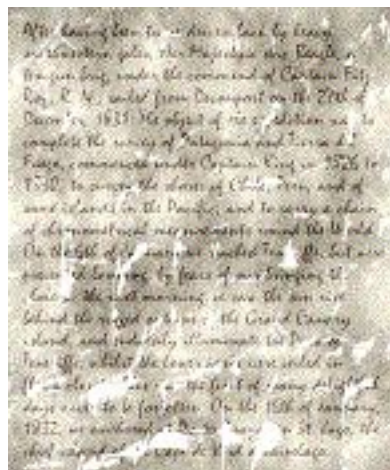 After having been twice driven back by heavy
southwestern gales, Her Majesty's ship Beagle, a
ten-gun brig, under the command of Captain Fitz
Roy, R. N., sailed from Devonport on the 27th of
December, 1831. The object of the expedition was to
complete the survey of Patagonia and Tierra del
Fuego, commenced under Captain King in 1826 to
1830; to survey the shores of Chile, Peru, and of
some islands in the Pacific; and to carry a chain
of chronometrical measurements round the World.
On the 6th of January we reached Teneriffe, but were
prevented landing, by fears of our bringing the
the next morning we saw the sun rise
behind the rugged outline of the Grand Canary
island, and suddenly illuminate the Peak of
Teneriffe, whilst the lower parts were veiled in
fleecy clouds. This was the first of many delightful
days never to be forgotten. On the 16th of January,
1832, we anchored at Porto Praya, in St. Jago, the
chief island of the Cape de Verd archipelago.